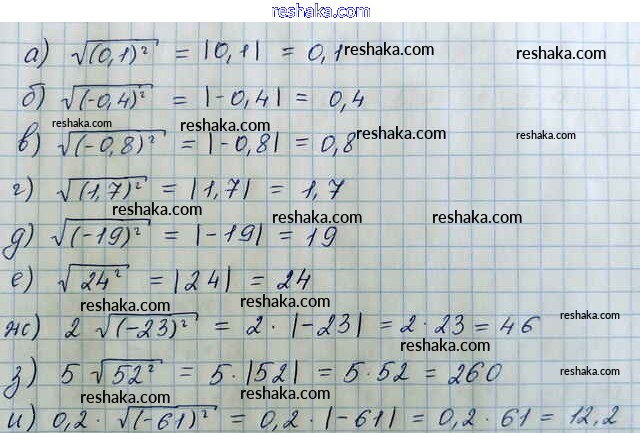 reshaka.com
а) √(0,1)² = |0,1| = 0,1 reshaka.com reshaka.com
б) √(-0,4)² = |-0,4| = 0,4
reshaka.com reshaka.com reshaka.com reshaka.com
в) √(-0,8)² = |-0,8| = 0,8
г) √(1,7)² = |1,7| = 1,7
reshaka.com reshaka.com reshaka.com
д) √(-19)² = |-19| = 19
е) √24² = |24| = 24
reshaka.com reshaka.com reshaka.com
ж) 2 √(-23)² = 2 · |-23| = 2 · 23 = 46
reshaka.com reshaka.com
з) 5 √52² = 5 · |52| = 5 · 52 = 260
reshaka.com reshaka.com reshaka.com
и) 0,2 · √(-61)² = 0,2 · |-61| = 0,2 · 61 = 12,2